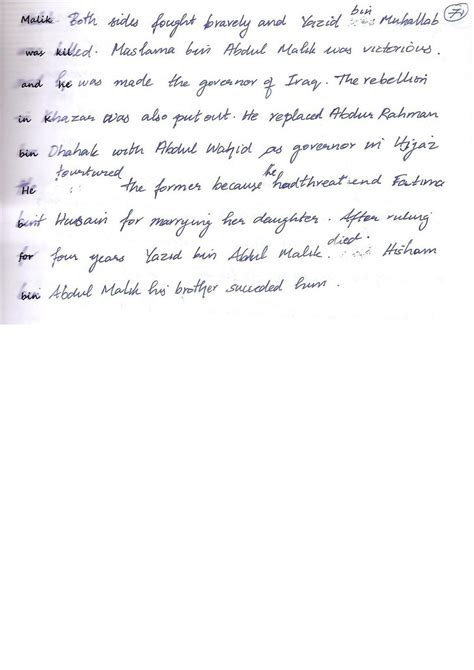 Malik Both sides fought bravely and Yazid bin Muhallab 7
was killed. Maslama bin Abdul Malik was victorious.
and he was made the governor of Iraq. The rebellion
in Khazar was also put out. He replaced Abdur Rahman
bin Dhahak with Abdul Wahid as governor in Hijaz
He tourtured the former because he had threatened Fatima
bint Hussain for marrying her daughter. After ruling
for four years Yazid bin Abdul Malik died. Hisham
bin Abdul Malik his brother succeded him.